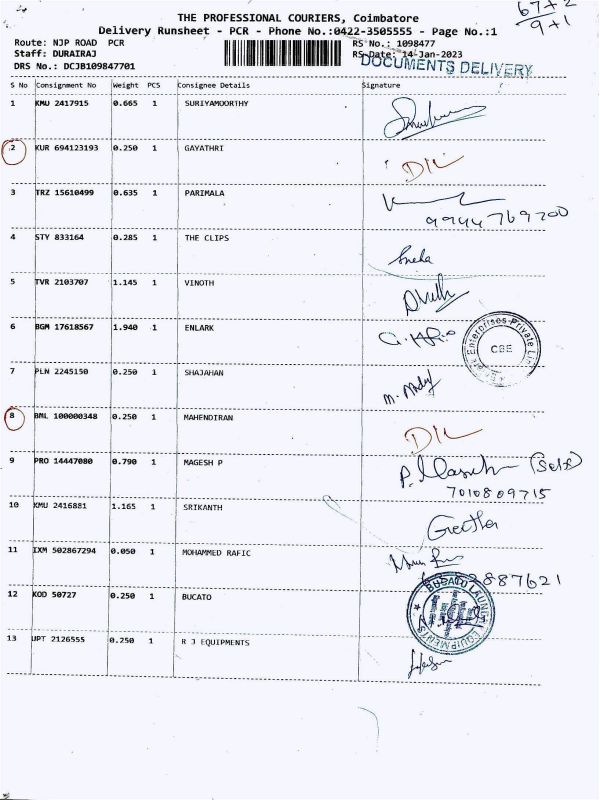 67+2
9+1
THE PROFESSIONAL COURIERS, Coimbatore
Delivery Runsheet - PCR - Phone No.:0422-3505555 - Page No.:1
Route: NJP ROAD PCR RS No.: 1098477
Staff: DURAIRAJ RS Date: 14-Jan-2023
DRS No.: DCJB109847701 DOCUMENTS DELIVERY
S No Consignment No Weight PCS Consignee Details Signature
1 KMU 2417915 0.665 1 SURIYAMOORTHY
2 KUR 694123193 0.250 1 GAYATHRI DIL
3 TRZ 15610499 0.635 1 PARIMALA
9944769700
4 STY 833164 0.285 1 THE CLIPS Sneha
5 TVR 2103707 1.145 1 VINOTH
6 BGM 17618567 1.940 1 ENLARK
Enterprises Private
CBE
7 PLN 2245150 0.250 1 SHAJAHAN
8 BML 100000348 0.250 1 MAHENDIRAN DIL
9 PRO 14447080 0.790 1 MAGESH P (Self)
7010809715
10 KMU 2416881 1.165 1 SRIKANTH Geetha
11 IXM 502867294 0.050 1 MOHAMMED RAFIC
887621
12 KOD 50727 0.250 1 BUCATO
EQUIPMENTS
13 UPT 2126555 0.250 1 R J EQUIPMENTS